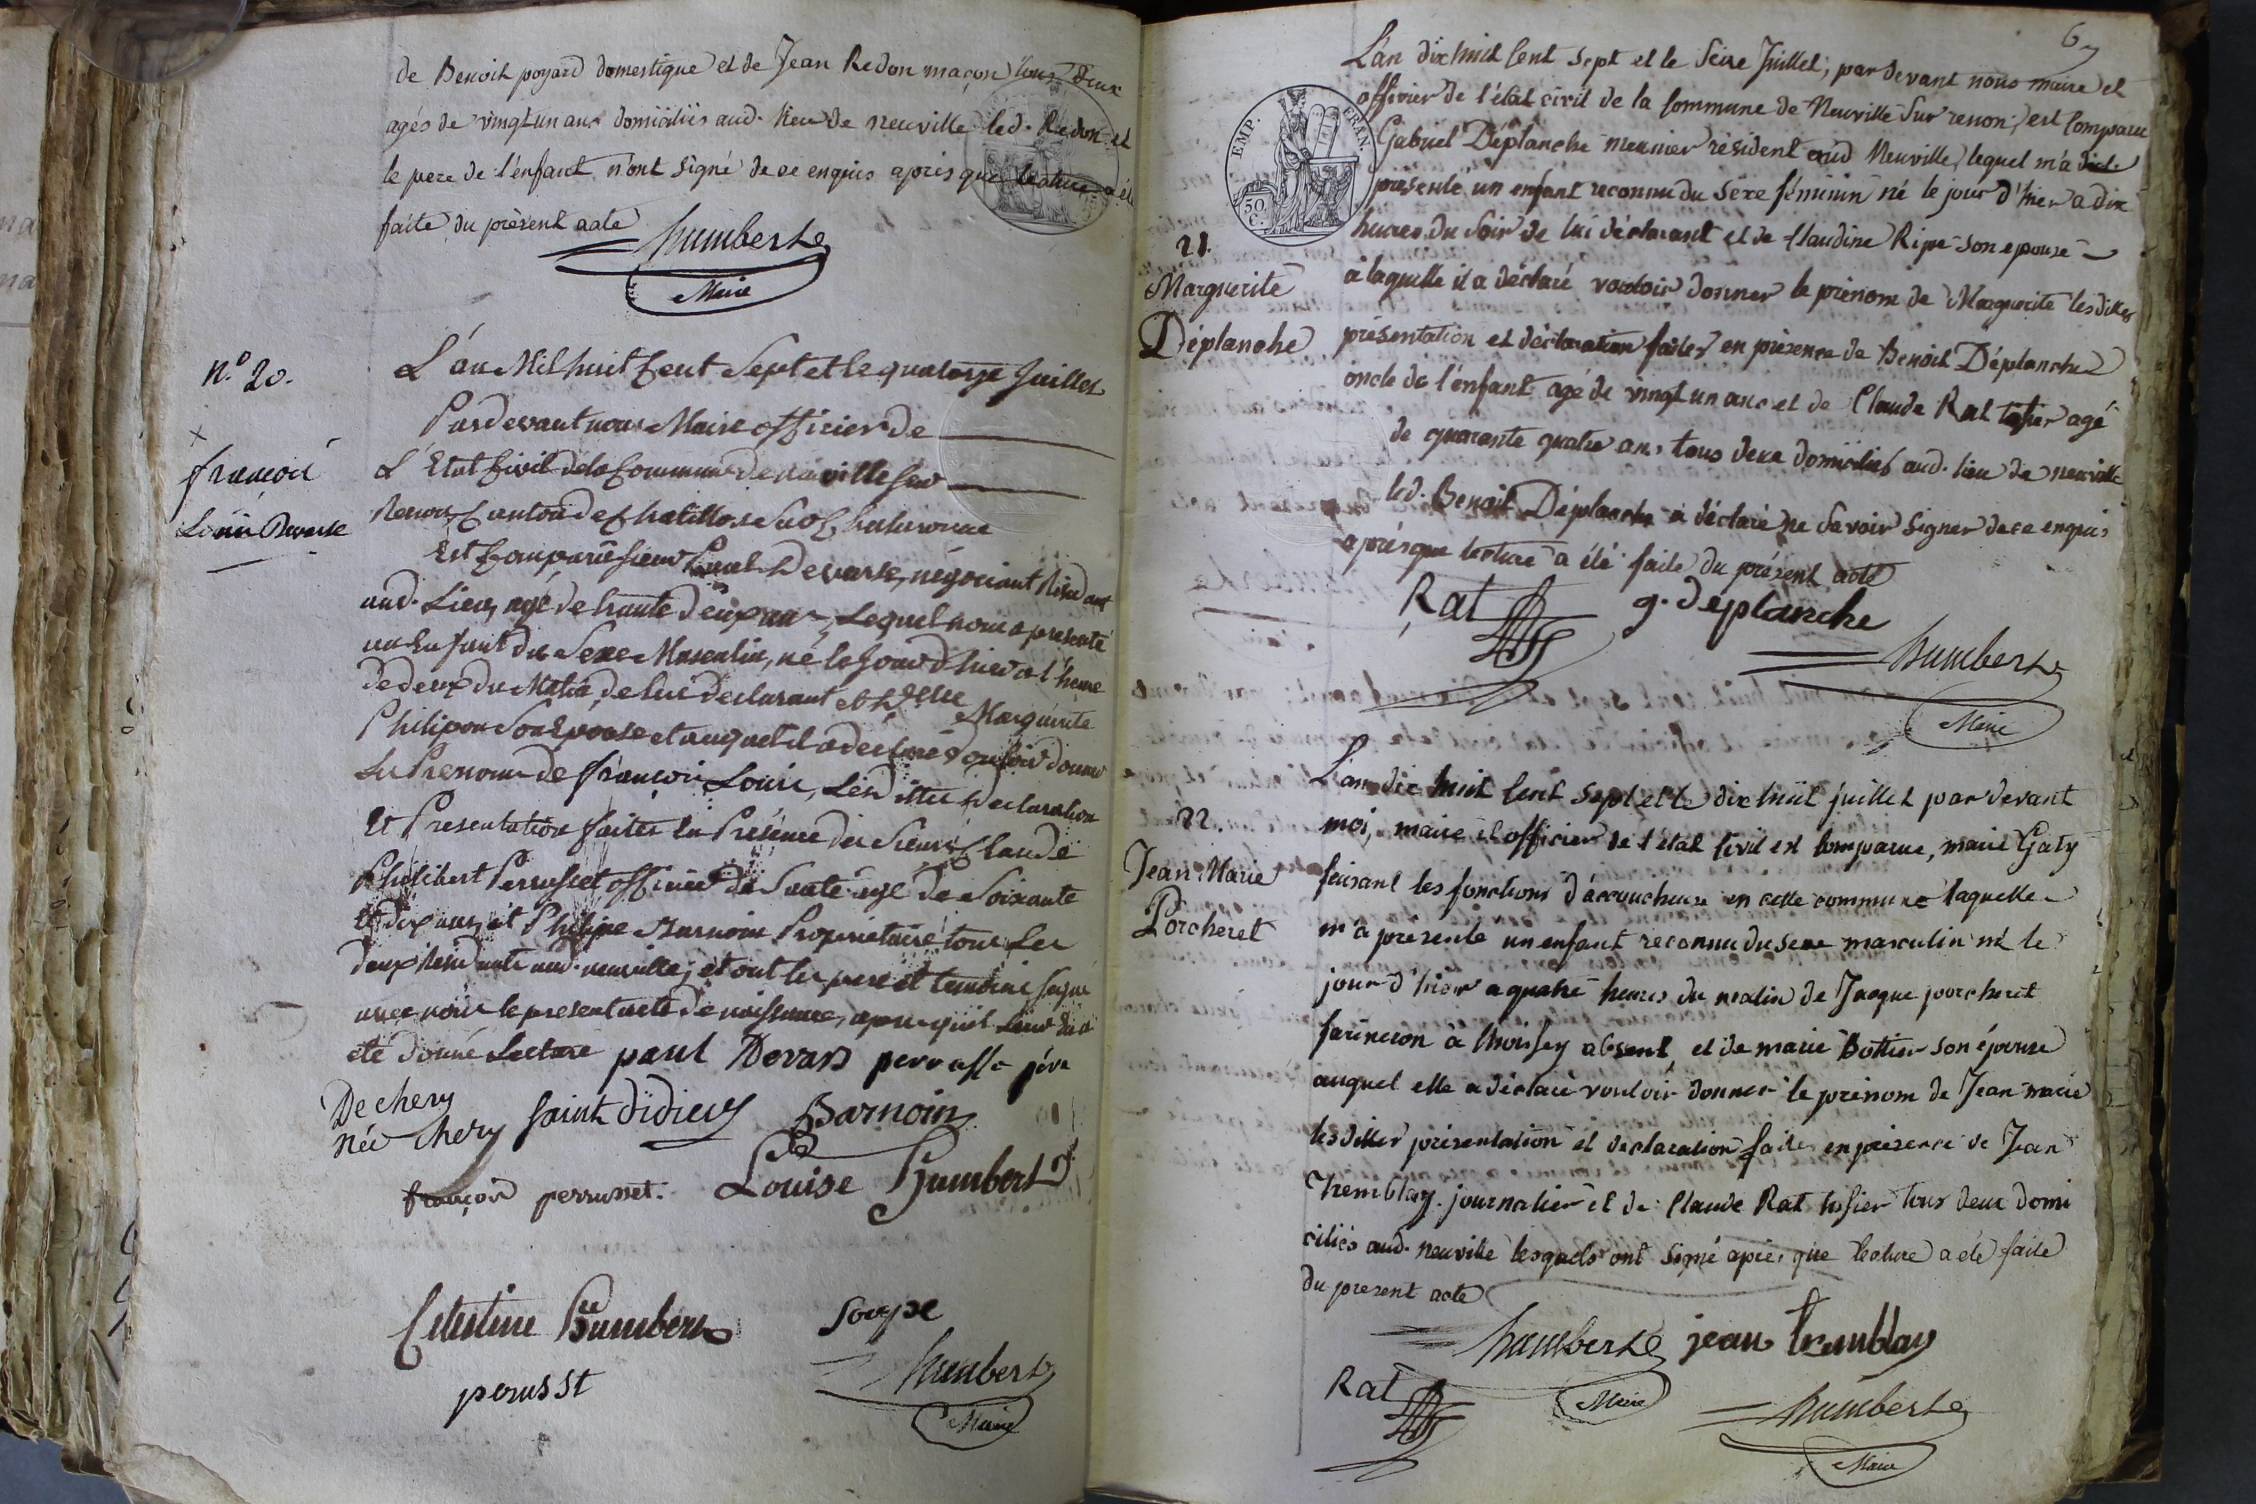 de Benoit poyard domestique et de Jean Redon maçon tous deux
agés de vingt un ans domiciliés aud. lieu de neuville led. Redon et
le pere de l'enfant n'ont signé de ce enquis après que lecture a été
faite du présent acte
humberte
Maire
n.º 20.
françois
Louis Devarse
L'an Mil huit Cent Sept et le quatorze Juillet
Pardevant nous Maire officier de
L'Etat Civil de la Commune de neuville sur
Renon Canton de Chatillon sur Chalaronne
Est Comparu sieur Paul Devarse, négociant Résidant
aud. Lieu, agé de trante deux ans, Lequel nous a presenté
un Enfant du Sexe Masculin, né le Jour d'hier a l'heure
de deux du Matin, de lui declarant et de d.elle Marguerite
Philipon Son Epouse et auquel il a declaré Vouloir donner
Les Prenoms de françois Louis, Lesdittes declaration
Et Presentation faites En Présence des Sieurs Claude
Philibert Perrusset officier de Santé agé de Soixante
Et dix ans, et Philipe Barnoin Propriétaire tous Les
deux Residants aud. neuville; et ont les pere et temoins signé
avec nous le present acte de naissance, apres qu'il Leur En a
eté donné Lecture paul Devars perrasse père
De chery
née chery saint didier Barnoin
françois perrusset. Louise Humbert
Celestine Humbert soupe
perusst humberte
Maire
6
EMP. FRAN.
50 C.
21.
Marguerite
Déplanche
L'an dix huit Cent Sept et le Seize Juillet, par devant nous maire et
officier de l'état civil de la Commune de Neuville Sur renon, est Comparu
Gabriel Déplanche meunier résident aud Neuville, lequel m'a
présenté un enfant reconnu du Sexe féminin né le jour d'hier a dix
heures du Soir de lui déclarant et de Claudine Ripe son epouse
à laquelle il a déclaré vouloir donner le prénom de Marguerite lesdittes
présentation et déclaration faites en présence de Benoit Déplanche
oncle de l'enfant agé de vingt un ans et de Claude Rat tissier agé
de quarante quatre ans tous deux domiciliés aud. lieu de neuville
led. Benoit Déplanche a déclaré ne Savoir Signer de ce enquis
après que lecture a été faite du présent acte
Rat g. deplanche
humberte
Maire
22.
Jean Marie
Porcheret
L'an dix huit Cent Sept et le dix huit juillet par devant
moi, maire et officier de l'état Civil est Comparue, marie Gaty
faisant les fonctions d'accoucheuse en cette commune laquelle
m'a présenté un enfant reconnu du sexe masculin né le
jour d'hier a quatre heures du matin de Jacque porcheret
farineron à thoissey absent, et de marie Bottier son épouse
auquel elle a déclaré vouloir donner le prénom de Jean marie
lesdittes présentation et declaration faites en présence de Jean
Tremblay journalier et de Claude Rat tissier tous deux domi
ciliés aud. neuville lesquels ont signé après que lecture a été faite
du present acte
humberte jean tremblay
Rat Maire humberte
Maire